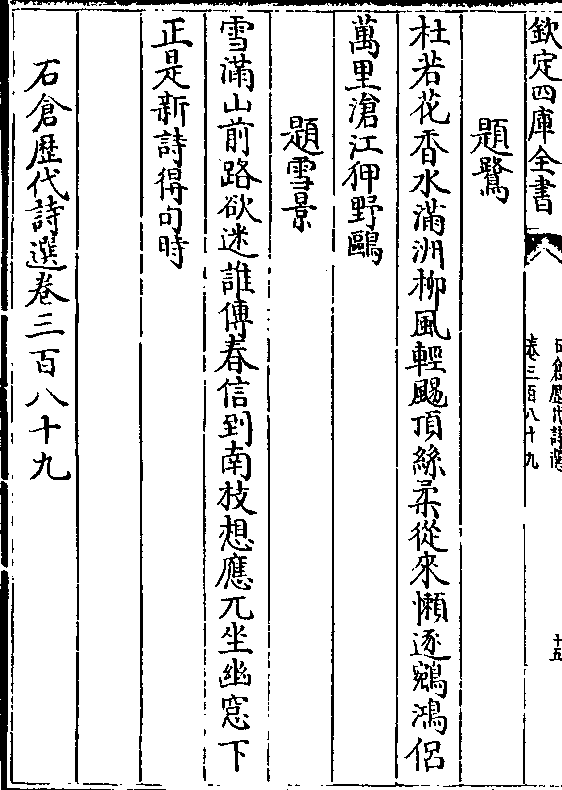 欽定四庫全書
石倉歷代詩選
卷三百八十九
十五
題鷺
杜若花香水滿洲柳風輕颺頂絲柔從來懶逐鵷鴻侶
萬里滄江狎野鷗
題雪景
雪滿山前路欲迷誰傳春信到南枝想應兀坐幽窓下
正是新詩得句時
石倉歴代詩選卷三百八十九